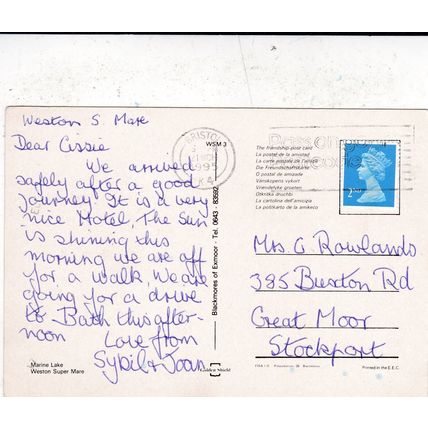 Weston S Mare
Dear Cissie
We arrived
safely after a good
Journey. It is a very
nice Motel, The Sun
is shining this
morning we are off
for a walk, We are
going for a drive
to Bath this after-
noon
Love from
Sybil & Joan
Marine Lake
Weston Super Mare
Blackmores of Exmoor - Tel. 0643 - 83692
Golden Shield
WSM 3
The friendship post card
La postal de la amistad
La carte postale de l'amitié
Die Freundschaftskarte
O postal de amizade
Vänskapens vykort
Vriendelijke groeten
La cartolina dell'amicizia
La poŝtkarto de la amikeco
BRISTOL
1995
2ND
Mrs C. Rowlands
385 Buxton Rd
Great Moor
Stockport
Printed in the E.E.C.